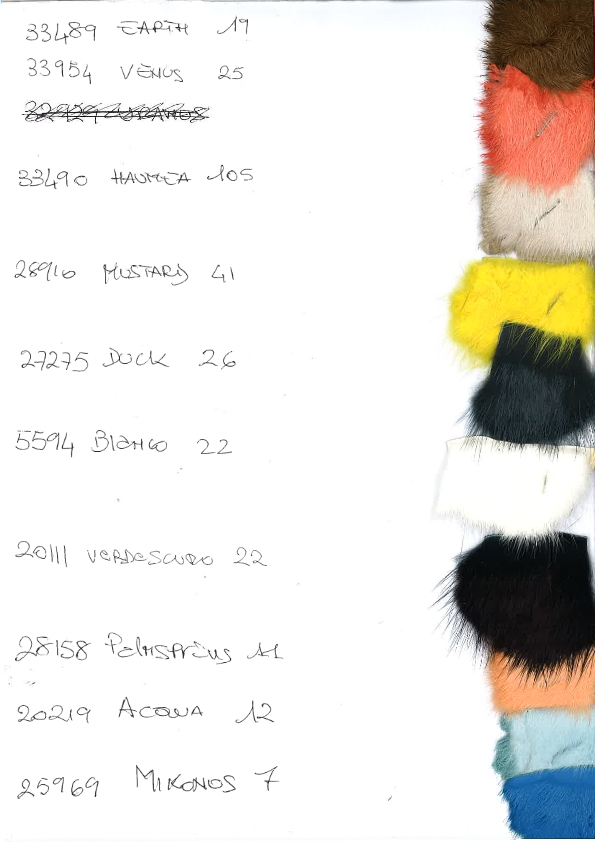 33489 EARTH 19
33954 VENUS 25
33490 HAUMEA 105
28916 MUSTARD 41
27275 DUCK 26
5594 Blanco 22
20111 VERDESCURO 22
28158 11
20219 ACQUA 12
25969 MIKONOS 7